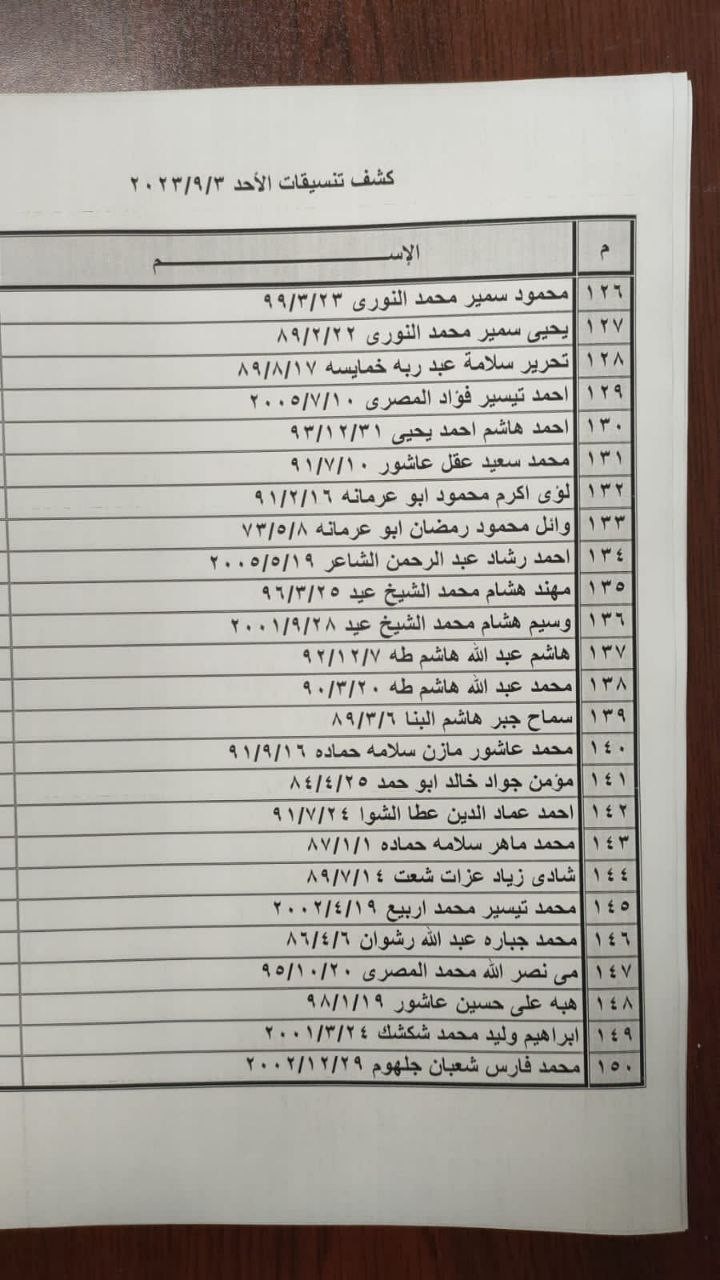 كشف تنسيقات الأحد ٢٠٢٣/٩/٣
م الإســـــــــــــــــم
١٢٦ محمود سمير محمد النورى ٩٩/٣/٢٣
١٢٧ يحيى سمير محمد النورى ٨٩/٢/٢٢
١٢٨ تحرير سلامة عبد ربه خمايسه ٨٩/٨/١٧
١٢٩ احمد تيسير فؤاد المصرى ٢٠٠٥/٧/١٠
١٣٠ احمد هاشم احمد يحيى ٩٣/١٢/٣١
١٣١ محمد سعيد عقل عاشور ٩١/٧/١٠
١٣٢ لؤى اكرم محمود ابو عرمانه ٩١/٢/١٦
١٣٣ وائل محمود رمضان ابو عرمانه ٧٣/٥/٨
١٣٤ احمد رشاد عبد الرحمن الشاعر ٢٠٠٥/٥/١٩
١٣٥ مهند هشام محمد الشيخ عيد ٩٦/٣/٢٥
١٣٦ وسيم هشام محمد الشيخ عيد ٢٠٠١/٩/٢٨
١٣٧ هاشم عبد الله هاشم طه ٩٢/١٢/٧
١٣٨ محمد عبد الله هاشم طه ٩٠/٣/٢٠
١٣٩ سماح جبر هاشم البنا ٨٩/٣/٦
١٤٠ محمد عاشور مازن سلامه حماده ٩١/٩/١٦
١٤١ مؤمن جواد خالد ابو حمد ٨٤/٤/٢٥
١٤٢ احمد عماد الدين عطا الشوا ٩١/٧/٢٤
١٤٣ محمد ماهر سلامه حماده ٨٧/١/١
١٤٤ شادى زياد عزات شعت ٨٩/٧/١٤
١٤٥ محمد تيسير محمد اربيع ٢٠٠٢/٤/١٩
١٤٦ محمد جباره عبد الله رشوان ٨٦/٤/٦
١٤٧ مى نصر الله محمد المصرى ٩٥/١٠/٢٠
١٤٨ هبه على حسين عاشور ٩٨/١/١٩
١٤٩ ابراهيم وليد محمد شكشك ٢٠٠١/٣/٢٤
١٥٠ محمد فارس شعبان جلهوم ٢٠٠٢/١٢/٢٩